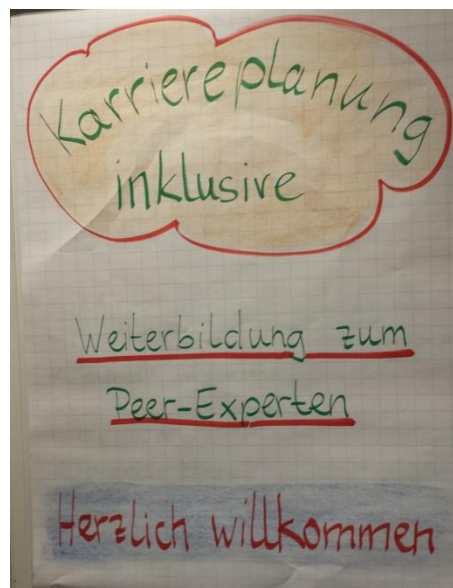 Karriereplanung
inklusive
Weiterbildung zum
Peer-Experten
Herzlich willkommen